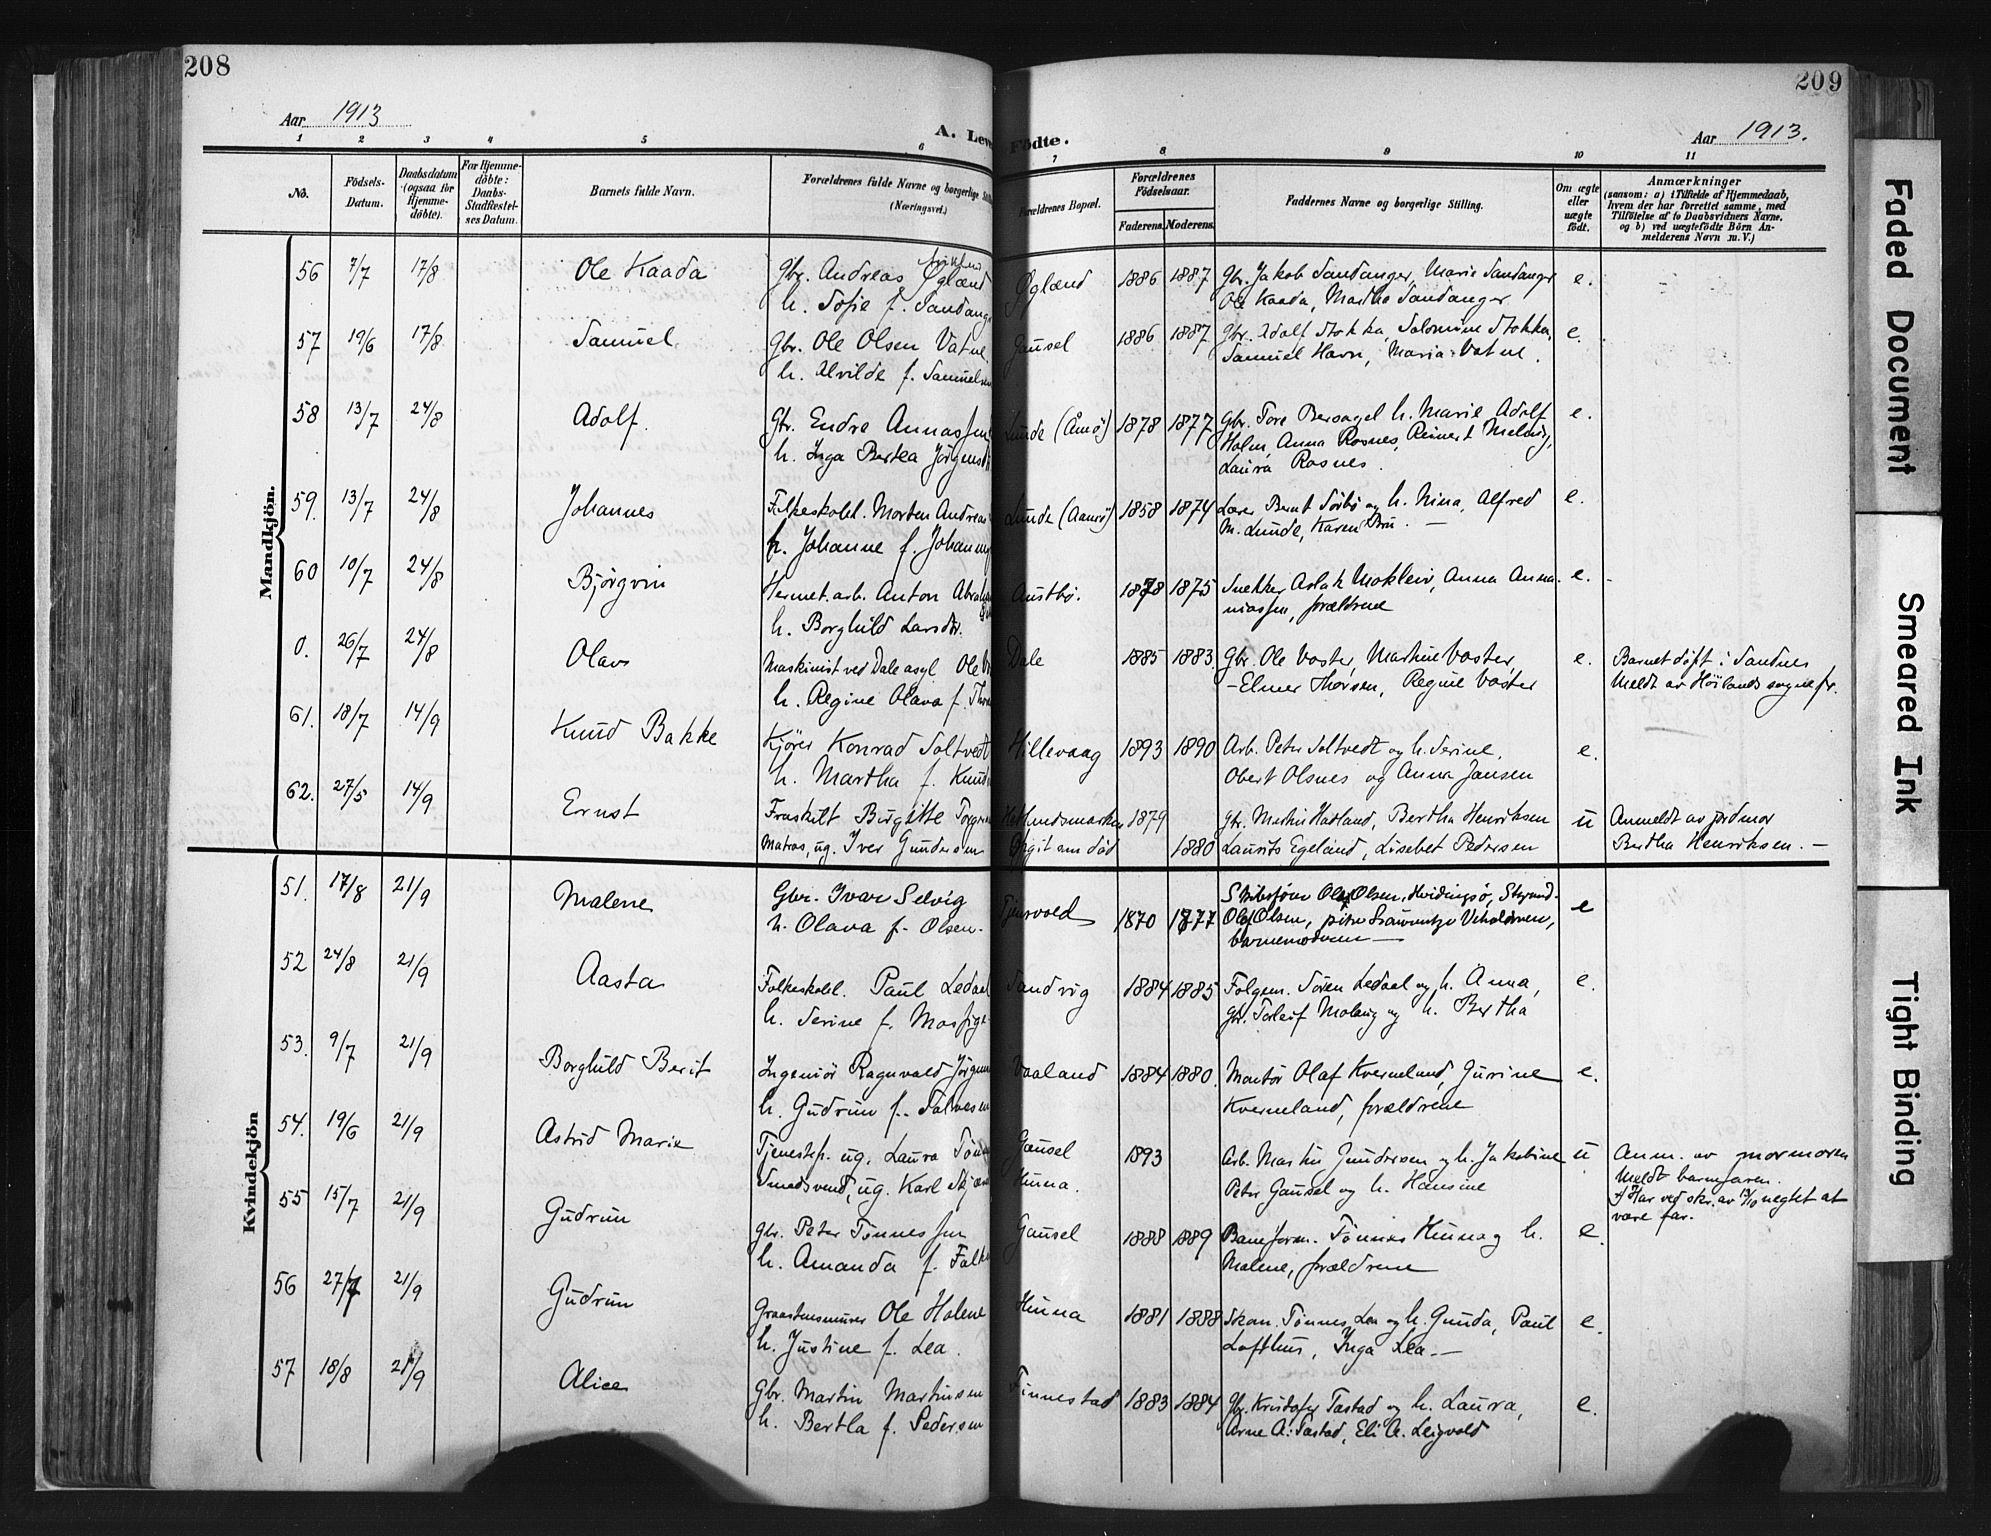 208
209
Aar 1913
A. Leve
Fødte.
Aar 1913.
1 2 3 4 5 6 7 8 9 10 11
No.
Fødsels-Datum.
Daabsdatum (ogsaa for Hjemme-døbte).
For Hjemme-døbte: Daabs-Stadfæstel-ses Datum.
Barnets fulde Navn.
Forældrenes fulde Navne og borgerlige Still
(Næringsvei.)
Forældrenes Bopæl.
Forældrenes Fødselsaar.
Faderens. Moderens.
Faddernes Navne og borgerlige Stilling.
Om ægte eller uægte født.
Anmærkninger
(saasom: a) i Tilfælde af Hjemmedaab,
hvem der har forrettet samme, med
Tilføielse af to Daabsvidners Navne.
og b) ved uægtefødte Børn An-
melderens Navn m. V.)
Mandkjön.
56 7/7 17/8 Ole Kaada Gbr. Andreas Øglænd Øglænd 1886 1887 Gbr. Jakob Sandanger, Marie Sandanger e.
h. Sofie f. Sandang Ole Kaada, Martha Sandanger
57 19/6 17/8 Samuel Gbr. Ole Olsen Vatne Gausel 1886 1887 Gbr. Adolf Stokka, Salomine Stokka, e.
h. Alvilde f. Samuelsen Samuel Havn, Maria Vatne.
58 13/7 24/8 Adolf. Gbr. Endre Annassen Lunde (Åmø) 1878 1877 Gbr. Tore Bersagel h. Marie Adolf e.
h. Inga Bertea Jørgensd Holm, Anna Rosnes, Reinert Meling,
Laura Rosnes.
59. 13/7 24/8 Johannes Folkeskolel. Morten Andreas Lunde (Aamø) 1858 1874 Lærer Bernt Sørbø og h. Nina, Alfred e.
h. Johanne f. Johanne M. Lunde, Karen Bru. —
60 10/7 24/8 Bjørgvin Hermet. arb. Anton Abraham Austbø. 1878 1875 Snekker Aslak Mokleiv, Anna Anna- e.
h. Borghild Larsdtr. niassen, forældrene
0. 26/7 24/8 Olav Maskinist ved Dale asyl Ole Dale 1885 1883 Gbr. Ole Voster, Martine Voster, e. Barnet døpt i Sandnes
h. Regine Olava f. Thor —Elmer Thorsen, Regine Voster Meldt av Høilands sognepr.
61. 18/7 14/9 Knud Bakke Kjører Konrad Soltvedt Hillevaag 1893 1890 Arb. Peter Soltvedt og h. Serine, e.
h. Martha f. Knuds Obert Olsnes og Anna Jansen
62. 27/5 14/9 Ernst Fraskilt Birgitte Torger Hetlandsmarken 1879 Gbr. Martin Hatland, Bertha Henriksen u Anmeldt av jordmor
Matros, ug. Iver Gundersen Opgit som død 1880 Laurits Egeland, Lisebet Pedersen Bertha Henriksen. —
Kvindekjön
51. 17/8 21/9 Malene Gbr. Ivar Selvig Tjensvold 1870 1877 Skibsfører Olaf Olsen, Hvidingsø, Styrmd. e
h. Olava f. Olsen. Olaf Olsen,
barnemoderen —
52 24/8 21/9 Aasta Folkeskolel. Paul Ledaal Sandvig 1884 1885 Følgem. Søren Ledaal og h. Anna, e.
h. Serine f. Mossige Gbr. Torleif Maling og h. Bertha
53. 9/7 21/9 Borghild Berit Ingeniør Ragnvald Jørgen Vaaland 1884 1880. Montør Olaf Kverneland, Gurine e.
h. Gudrun f. Salvesen Kverneland, forældrene
54. 19/6 21/9 Astrid Marie Tjenestep. ug. Laura Tønn Gausel 1893 Arb. Martin Gundersen og h. Jakobine u Anm. av mormoren
Smedsvend, ug. Karl Skjæ Hinna. Peter Gausel og h. Hansine Meldt barnefaren.
Har ved skr. av 13/10 negtet at
være far.
55 15/7 21/9 Gudrun Gbr. Peter Tønnessen Gausel 1888 1889 Baneform. Tønnes Hinna og h. e.
h. Amanda f. Falk Malene, forældrene
56 27/7 21/9 Gudrun Graastensmurer Ole Holene Hinna 1881 1888 Skom. Tønnes Lea og h. Gunda, Paul e.
h. Justine f. Lea. Lofthus, Inga Lea. —
57 18/8 21/9 Alice Gbr. Martin Martinsen Finnestad 1883 1884 Gbr. Kristofer Tastad og h. Laura, e.
h. Bertha f. Pedersen Arne A. Tastad, Eli A. Leigvold
Faded Document
Smeared Ink
Tight Binding